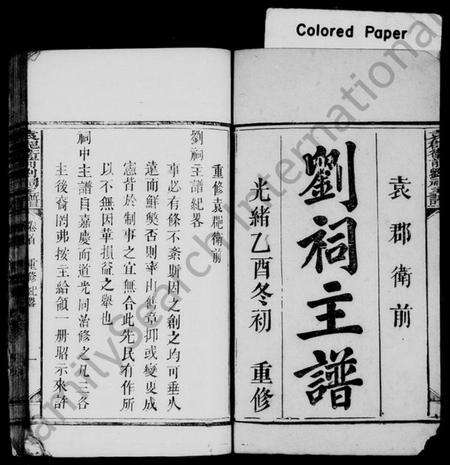 Colored Paper
袁郡衛前
劉祠主譜
光緒乙酉冬初 重修
重修袁郡衛前
劉祠主譜紀畧
事必有條不紊斯因之創之均可垂久
遠而鮮獘否則率由
抑或變更成
憲皆於制事之宜無合此先民有作所
以不無因革損益之舉也
祠中主譜自嘉慶而道光同治修之凡三各
主後裔罔弗按主給領一册昭示來許
FamilySearch International